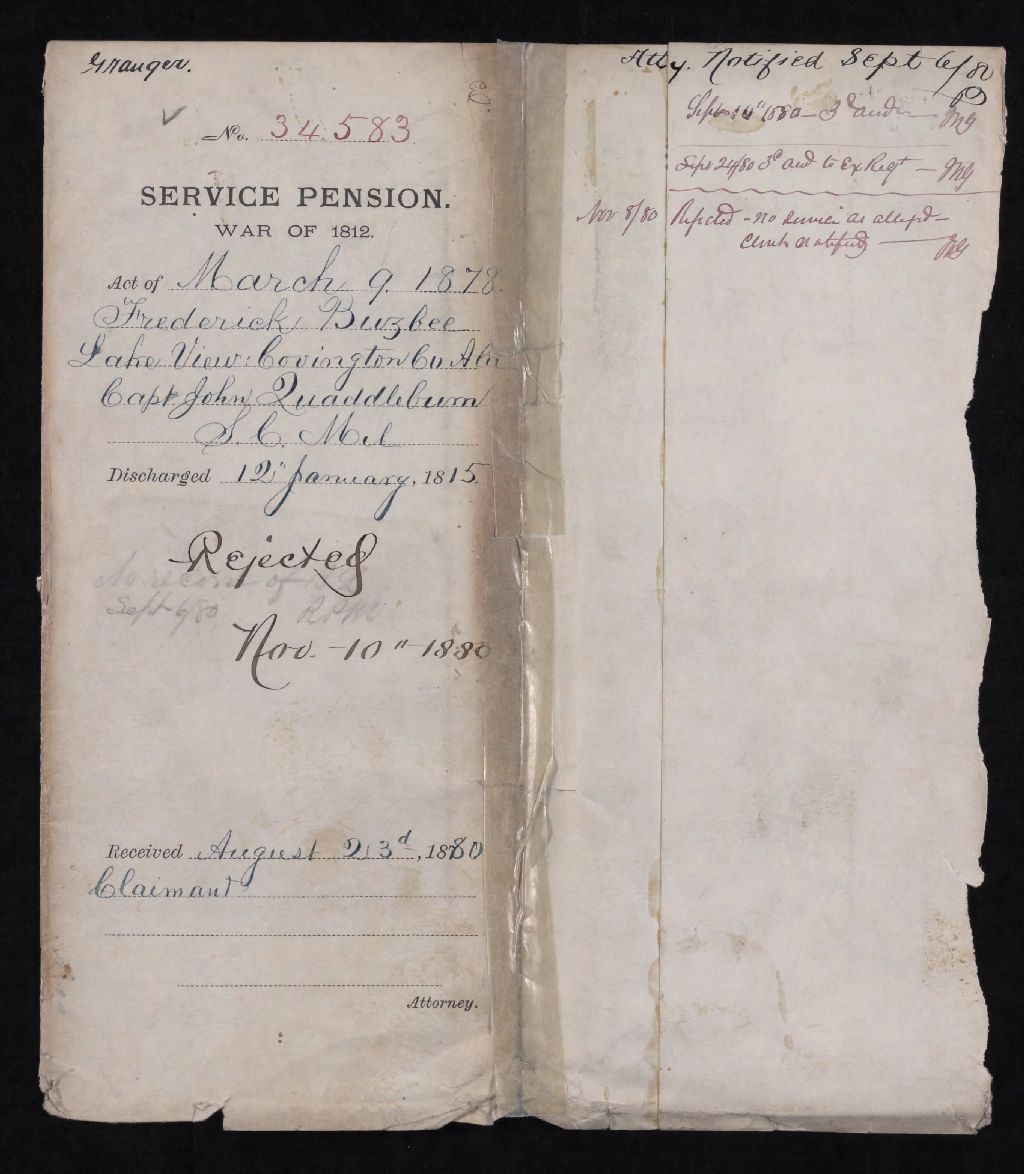 Granger.
No. 34.583
SERVICE PENSION.
WAR OF 1812.
Act of March 9. 1878.
Frederick Buzbee
Lake View: Covington Co Ala
Capt John Quaddlebum
S. C. Mil
Discharged 12" January, 1815.
Rejected
No record of
Sept 6/80
Nov. 10" 1880
Received August 23d, 1880
Claimant
Attorney.
Atty. Notified Sept 6/80
Sept 14" 1880 - 3d aud
Sept 24/80 3d aud to Ex Regt -
Nov 8/80 Rejected - no service as alleged -
Claimt notified